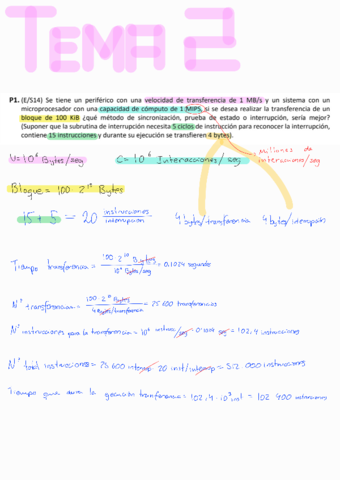 TEMA 2
P1. (E/S14) Se tiene un periférico con una velocidad de transferencia de 1 MB/s y un sistema con un
microprocesador con una capacidad de cómputo de 1 MIPS, si se desea realizar la transferencia de un
bloque de 100 KiB ¿qué método de sincronización, prueba de estado o interrupción, sería mejor?
(Suponer que la subrutina de interrupción necesita 5 ciclos de instrucción para reconocer la interrupción,
contiene 15 instrucciones y durante su ejecución se transfieren 4 bytes).
Millones de
V = 10⁶ Bytes/seg C = 10⁶ Interacciones/seg
Bloque = 100 · 2¹⁰ Bytes
15 + 5 = 20 instrucciones/interrupción 4 bytes/transferencia 4 bytes/interrupción
Tiempo transferencia = 100 · 2¹⁰ Bytes / 10⁶ Bytes/seg = 0,1024 segundo
Nº transferencias = 100 · 2¹⁰ Bytes / 4 Bytes/transferencia = 25 600 transferencias
Nº instrucciones para la transferencia = 10⁶ instrucc/seg · 0.1024 seg = 102,4 instrucciones
Nº total instrucciones = 25 600 interrup · 20 inst/interrup = 512 000 instrucciones
Tiempo que dura la transferencia = 102,4 · 10³ = 102 400 instrucciones